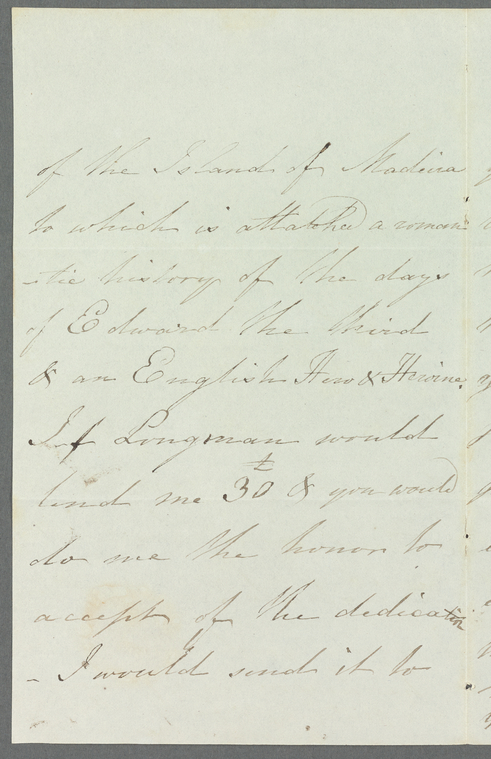 of the Island of Madeira
to which is attached a roman
-tic history of the days
of Edward the third
& an English Hero & Heroine.
If Longman would
lend me 30£ & you would
do me the honor to
accept of the dedication
- I would send it to